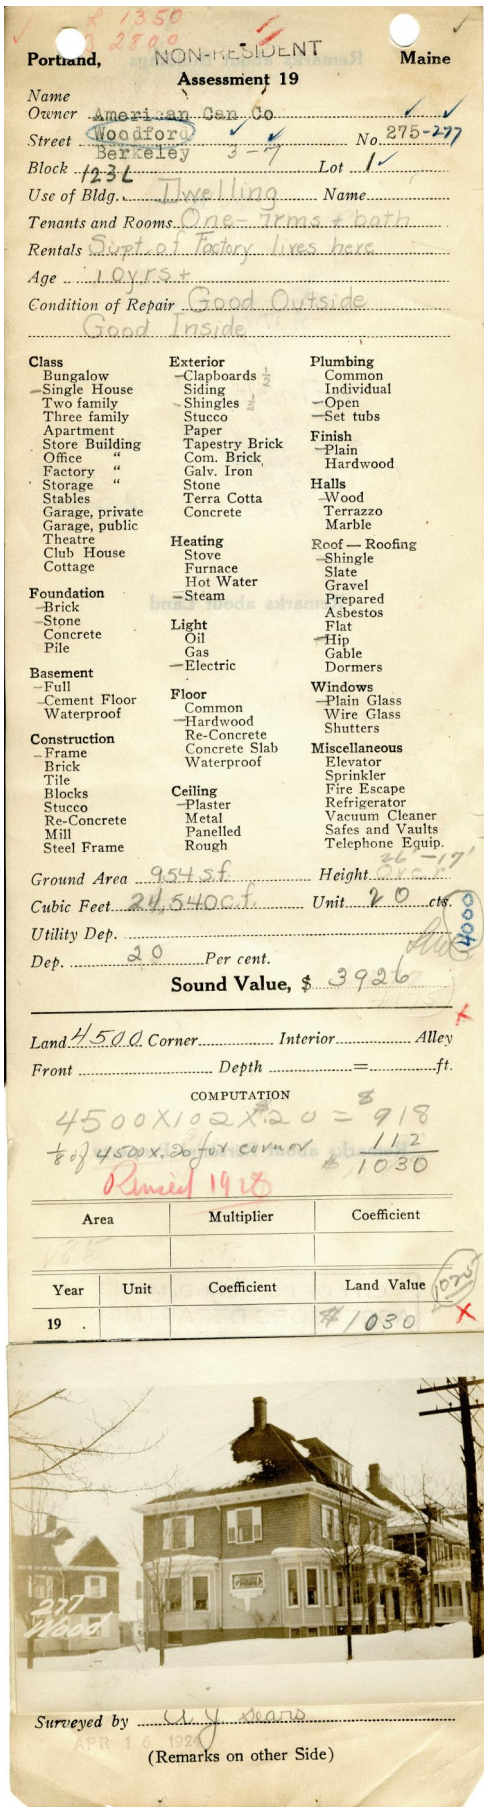 L 1350
B 2800
NON-RESIDENT
Portland, Maine
Assessment 19
Name
Owner American Can Co
Street Woodford No. 275-277
Berkeley 3-7
Block 123L Lot 1
Use of Bldg. Dwelling Name
Tenants and Rooms One - 7rms + bath
Rentals Supt. of Factory lives here
Age 10yrs +
Condition of Repair Good Outside
Good Inside
Class
Bungalow
Single House
Two family
Three family
Apartment
Store Building
Office "
Factory "
Storage "
Stables
Garage, private
Garage, public
Theatre
Club House
Cottage
Foundation
Brick
Stone
Concrete
Pile
Basement
Full
Cement Floor
Waterproof
Construction
Frame
Brick
Tile
Blocks
Stucco
Re-Concrete
Mill
Steel Frame
Exterior
Clapboards ½
Siding
Shingles ½
Stucco
Paper
Tapestry Brick
Com. Brick
Galv. Iron
Stone
Terra Cotta
Concrete
Heating
Stove
Furnace
Hot Water
Steam
Light
Oil
Gas
Electric
Floor
Common
Hardwood
Re-Concrete
Concrete Slab
Waterproof
Ceiling
Plaster
Metal
Panelled
Rough
Plumbing
Common
Individual
Open
Set tubs
Finish
Plain
Hardwood
Halls
Wood
Terrazzo
Marble
Roof — Roofing
Shingle
Slate
Gravel
Prepared
Asbestos
Flat
Hip
Gable
Dormers
Windows
Plain Glass
Wire Glass
Shutters
Miscellaneous
Elevator
Sprinkler
Fire Escape
Refrigerator
Vacuum Cleaner
Safes and Vaults
Telephone Equip.
26'-17'
Ground Area 954 s.f. Height Over
Cubic Feet 24,540 c.f. Unit 20 cts.
4000
Utility Dep.
Dep. 20 Per cent.
Sound Value, $ 3926
Land 4500 Corner Interior Alley
Front Depth = ft.
COMPUTATION
4500 X 102 X .20 = $ 918
1/8 of 4500 x .20 for corner 112
$ 1030
Revised 1928
Area Multiplier Coefficient
Year Unit Coefficient Land Value
1025
19 . $1030
277
Wood
Surveyed by A J Sears
APR 16 1924
(Remarks on other Side)